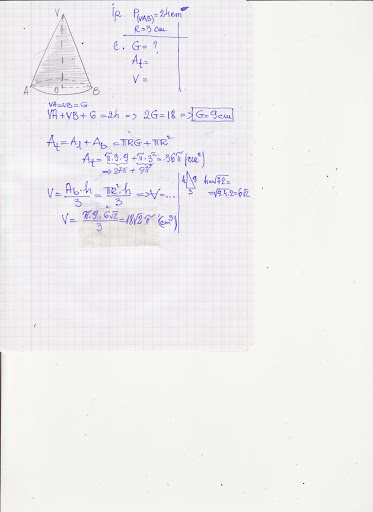 V
A O B
ip. P(VAB)=24cm
R=3cm
c. G=?
At=
V=
VA=VB=G
VA+VB+6=24 => 2G=18 => G=9cm
At=Al+Ab=πRG+πR²
At=π·3·9+π·3²=36π(cm²)
=> 27π + 9π
V=Ab·h/3=πR²·h/3 => V=...
h 9 3 h=√72=
=√9·4·2=6√2
V=π·9·6√2/3=18√2π(cm³)